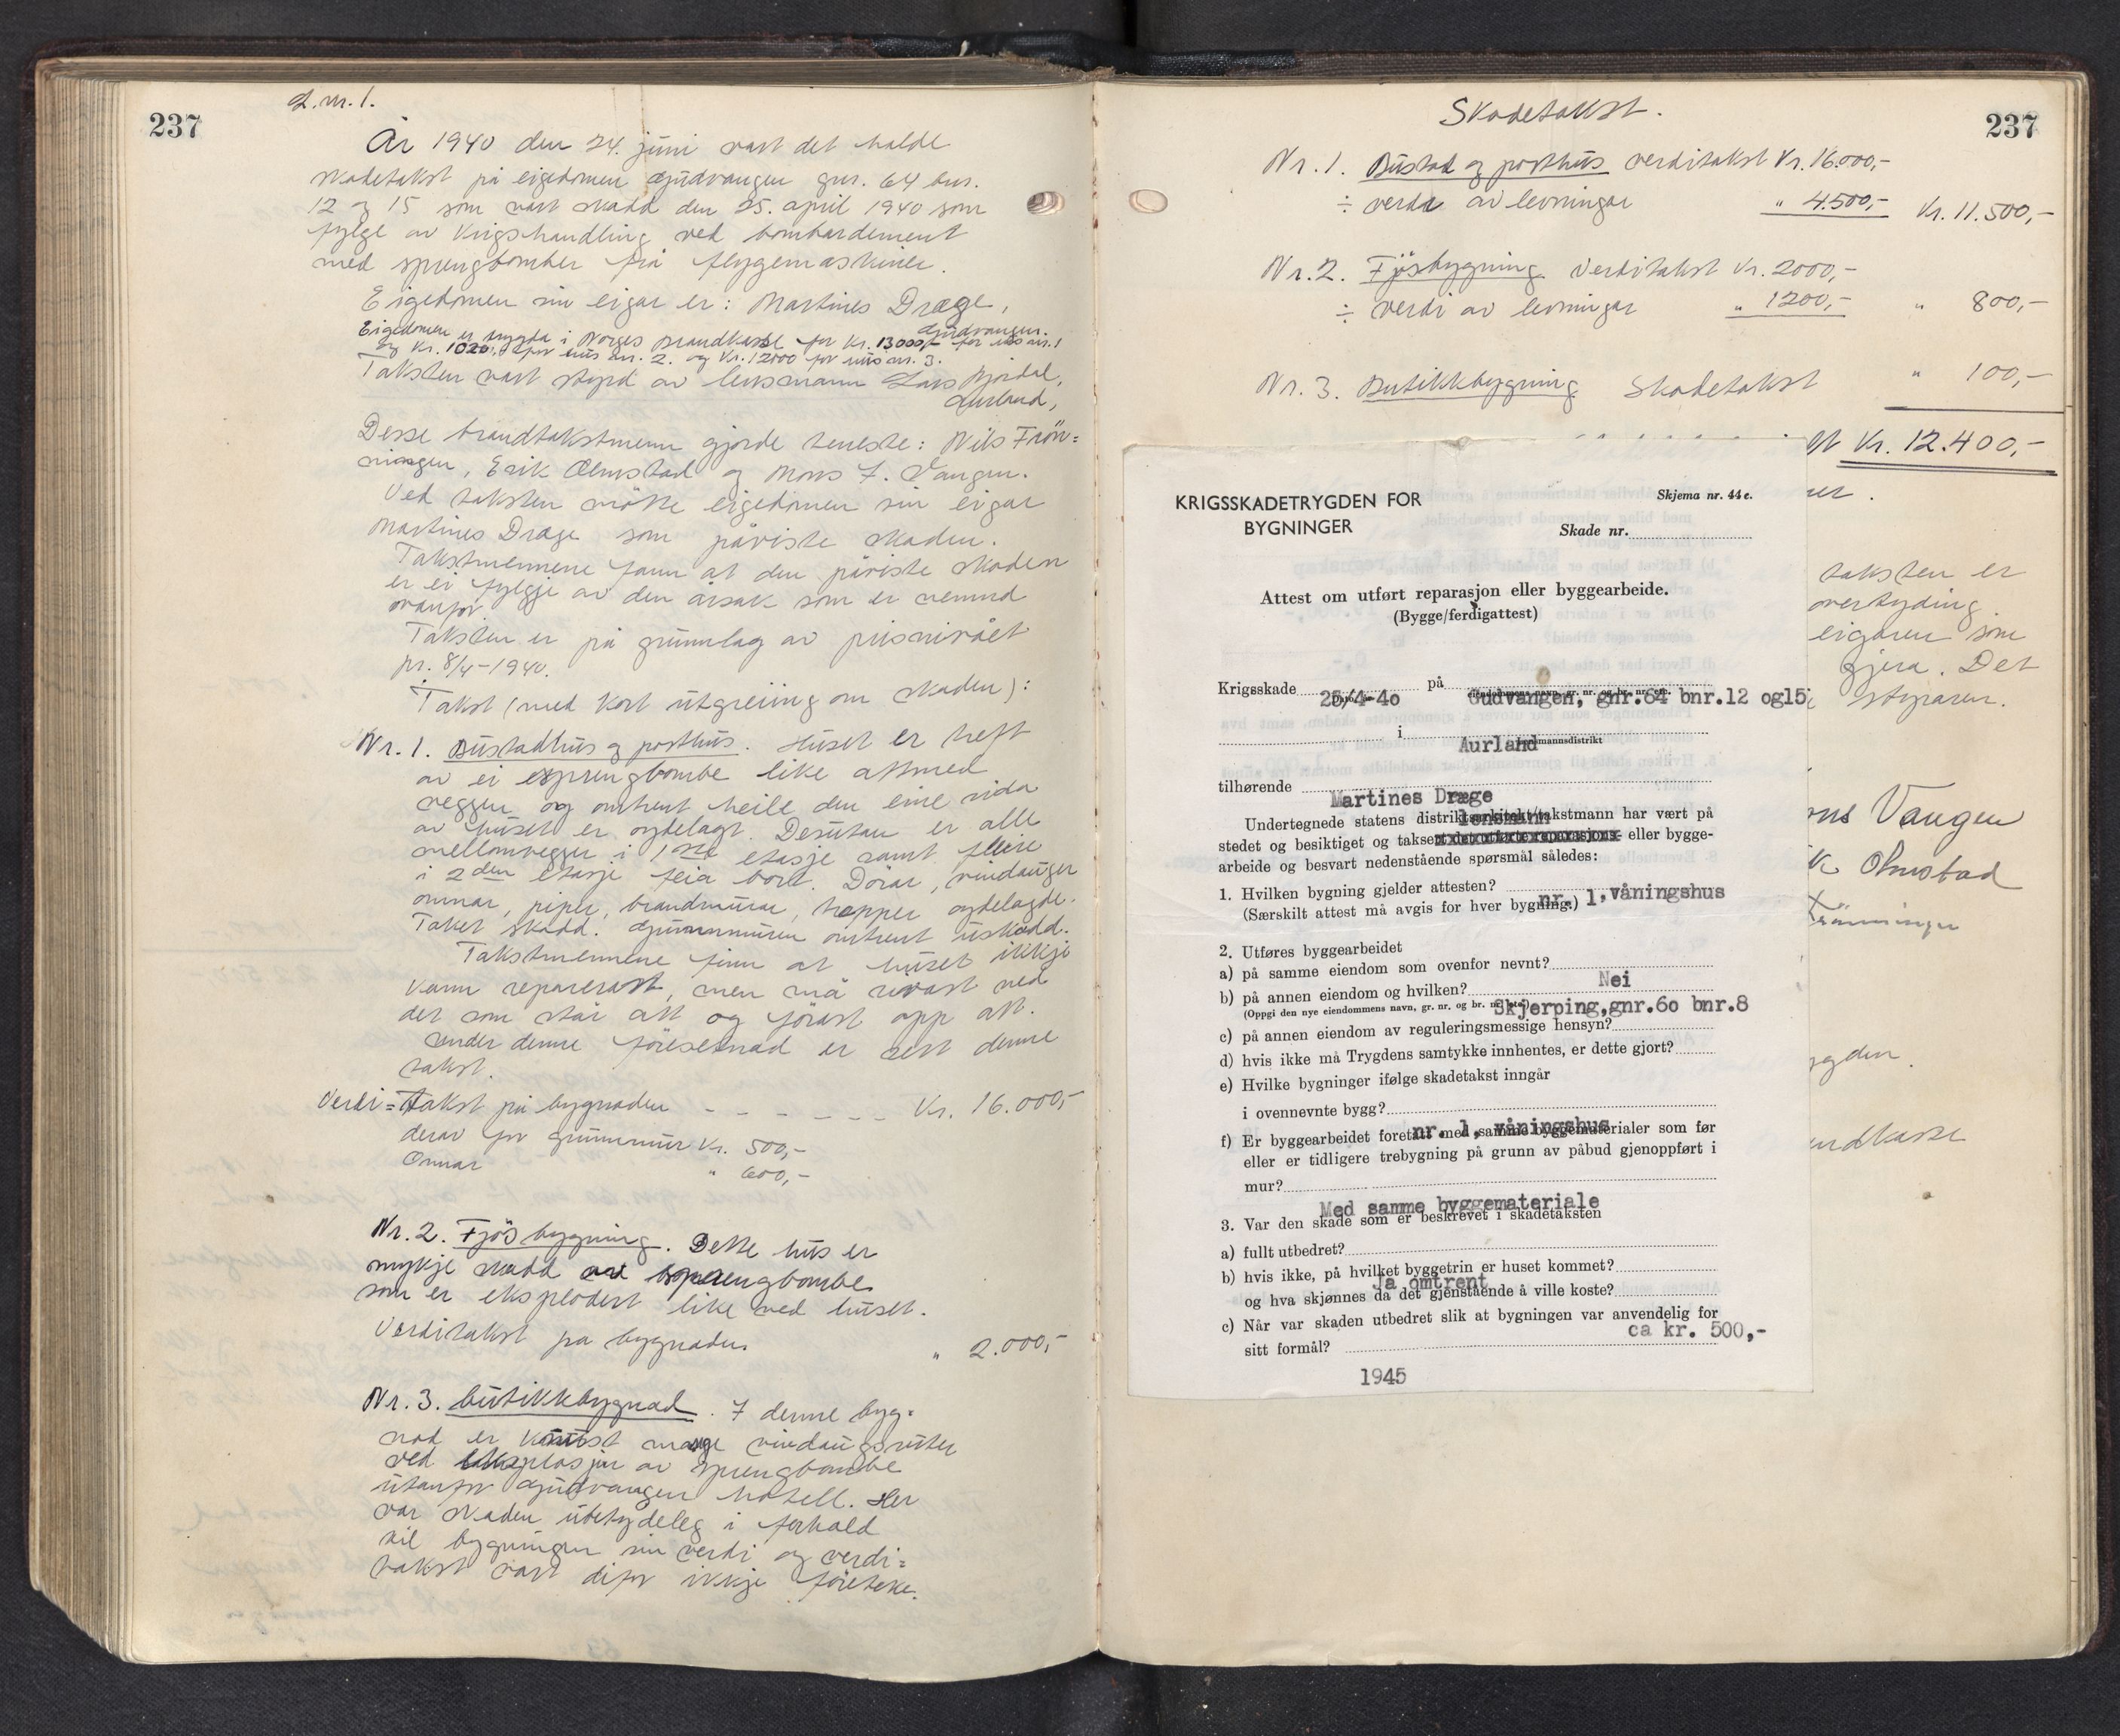 237
L.nr. 1.
År 1940 den 24. juni vart det halde
skadetakst på eigedomen Gudvangen gnr. 64 bnr.
12 og 15 som vart skadd den 25. april 1940 som
fylgje av krigshandling ved bombardement
med sprengbomber frå flygemaskiner.
Eigedomen sin eigar er: Martines Dræge,
Gudvangen.
Eigedomen er trygda i Norges Brandkasse for kr. 13000,- for hus nr. 1
og kr. 1020,- for hus nr. 2. og kr. 12000 for hus nr. 3.
Taksten vart styrd av lensmann Lars Bjørdal,
Aurland,
Desse brandtakstmenn gjorde teneste: Nils Frön=
ningen, Erik Olmstad og Mons J. Vangen.
Ved taksten møtte eigedomen sin eigar
Martines Dræge som påviste skaden.
Takstmennene fann at den påviste skaden
er ei fylgje av den årsak som er nemnd
ovanfor
Taksten er på grunnlag av prisnivået
pr. 8/4-1940.
Takst (med kort utgreiing om skaden):
Nr. 1. Bustadhus og posthus. Huset er treft
av ei sprengbombe like attmed
veggen og omtrent heile den eine sida
av huset er oydelagt. Desutan er alle
mellomvegger i 1ste etasje samt fleire
i 2den etasje feia bort. Dörar, vindauger
omnar, pipe, brandmurar, trapper oydelagde.
Taket skadd. Grunnmuren omtrent uskadd.
Takstmennene finn at huset ikkje
kann reparerast, men må rivast ned
det som står att og förast opp att.
Under denne föresetnad er sett denne
takst.
Verdi=takst på bygnaden - - - - - - Kr. 16.000,-
derav for grunnmur Kr. 500,-
Omnar " 600,-
Nr. 2. Fjösbygning. Dette hus er
mykje skadd av sprengbombe
som er eksplodert like ved huset.
Verditakst på bygnaden " 2.000,-
Nr. 3. Butikkbygnad. I denne byg=
nad er knust mange vindaugsruter
ved eksplosjon av sprengbombe
utanfor Gudvangen hotell. Her
var skaden ubetydeleg i forhold
til bygningen sin verdi og verdi=
takst vart difor ikkje företeke.
237
Skadetakst.
Nr. 1. Bustad og posthus verditakst Kr. 16.000,-
÷ verdi av levningar " 4.500,- Kr. 11.500,-
Nr. 2. Fjösbygning Verditakst Kr. 2000,-
÷ verdi av levningar " 1200,- " 800,-
Nr. 3. Butikkbygning Skadetakst " 100,-
Kr. 12.400,-
taksten er
overtyding.
eigaren som
gjera. Det
styraren.
Vangen
Olmstad
KRIGSSKADETRYGDEN FOR
BYGNINGER
Skjema nr. 44 e.
Skade nr.
Attest om utført reparasjon eller byggearbeide.
(Bygge/ferdigattest)
Krigsskade 25/4-40 på Gudvangen, gnr.64 bnr.12 og15
i Aurland
lensmannsdistrikt
tilhørende
Martines Dræge
Undertegnede statens distriktsarkitekt/takstmann har vært på
lensmann
stedet og besiktiget og taksert det utførte reparasjons- eller bygge-
arbeide og besvart nedenstående spørsmål således:
1. Hvilken bygning gjelder attesten?
(Særskilt attest må avgis for hver bygning.) nr. 1,våningshus
2. Utføres byggearbeidet
a) på samme eiendom som ovenfor nevnt?
Nei
b) på annen eiendom og hvilken?
(Oppgi den nye eiendommens navn, gr. nr. og br. nr. etc.) Skjerping,gnr.60 bnr.8
c) på annen eiendom av reguleringsmessige hensyn?
d) hvis ikke må Trygdens samtykke innhentes, er dette gjort?
e) Hvilke bygninger ifølge skadetakst inngår
i ovennevnte bygg?
nr. 1, våningshus
f) Er byggearbeidet foretatt med samme byggematerialer som før
eller er tidligere trebygning på grunn av påbud gjenoppført i
mur?
Med samme byggemateriale
3. Var den skade som er beskrevet i skadetaksten
a) fullt utbedret?
Ja omtrent
b) hvis ikke, på hvilket byggetrin er huset kommet?
og hva skjønnes da det gjenstående å ville koste?
ca kr. 500,-
c) Når var skaden utbedret slik at bygningen var anvendelig for
sitt formål?
1945